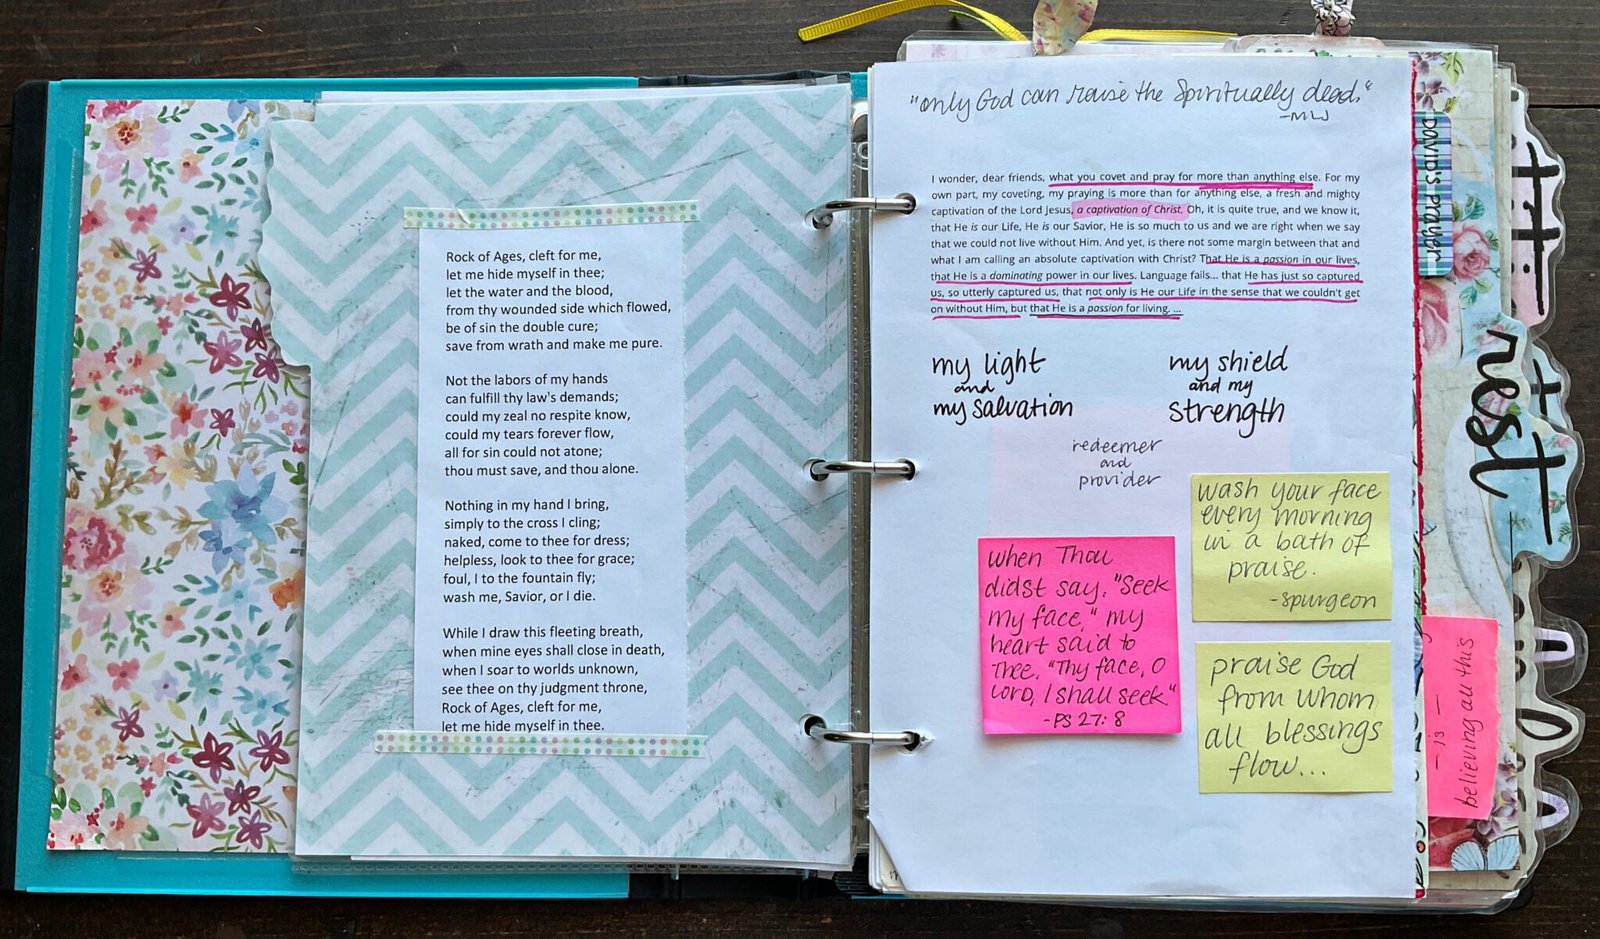 Rock of Ages, cleft for me,
let me hide myself in thee;
let the water and the blood,
from thy wounded side which flowed,
be of sin the double cure;
save from wrath and make me pure.
Not the labors of my hands
can fulfill thy law's demands;
could my zeal no respite know,
could my tears forever flow,
all for sin could not atone;
thou must save, and thou alone.
Nothing in my hand I bring,
simply to the cross I cling;
naked, come to thee for dress;
helpless, look to thee for grace;
foul, I to the fountain fly;
wash me, Savior, or I die.
While I draw this fleeting breath,
when mine eyes shall close in death,
when I soar to worlds unknown,
see thee on thy judgment throne,
Rock of Ages, cleft for me,
let me hide myself in thee.
"only God can raise the spiritually dead."
-MLJ
I wonder, dear friends, what you covet and pray for more than anything else. For my
own part, my coveting, my praying is more than for anything else, a fresh and mighty
captivation of the Lord Jesus, a captivation of Christ. Oh, it is quite true, and we know it,
that He is our Life, He is our Savior, He is so much to us and we are right when we say
that we could not live without Him. And yet, is there not some margin between that and
what I am calling an absolute captivation with Christ? That He is a passion in our lives,
that He is a dominating power in our lives. Language fails... that He has just so captured
us, so utterly captured us, that not only is He our Life in the sense that we couldn't get
on without Him, but that He is a passion for living. ...
my light
and
my salvation
my shield
and my
strength
redeemer
and
provider
when Thou
didst say, "Seek
My face," my
heart said to
Thee, "Thy face, O
LORD, I shall seek."
-PS 27:8
wash your face
every morning
in a bath of
praise.
-spurgeon
praise God
from whom
all blessings
flow...
DAVID'S PRAYER
rest
- is -
believing all this